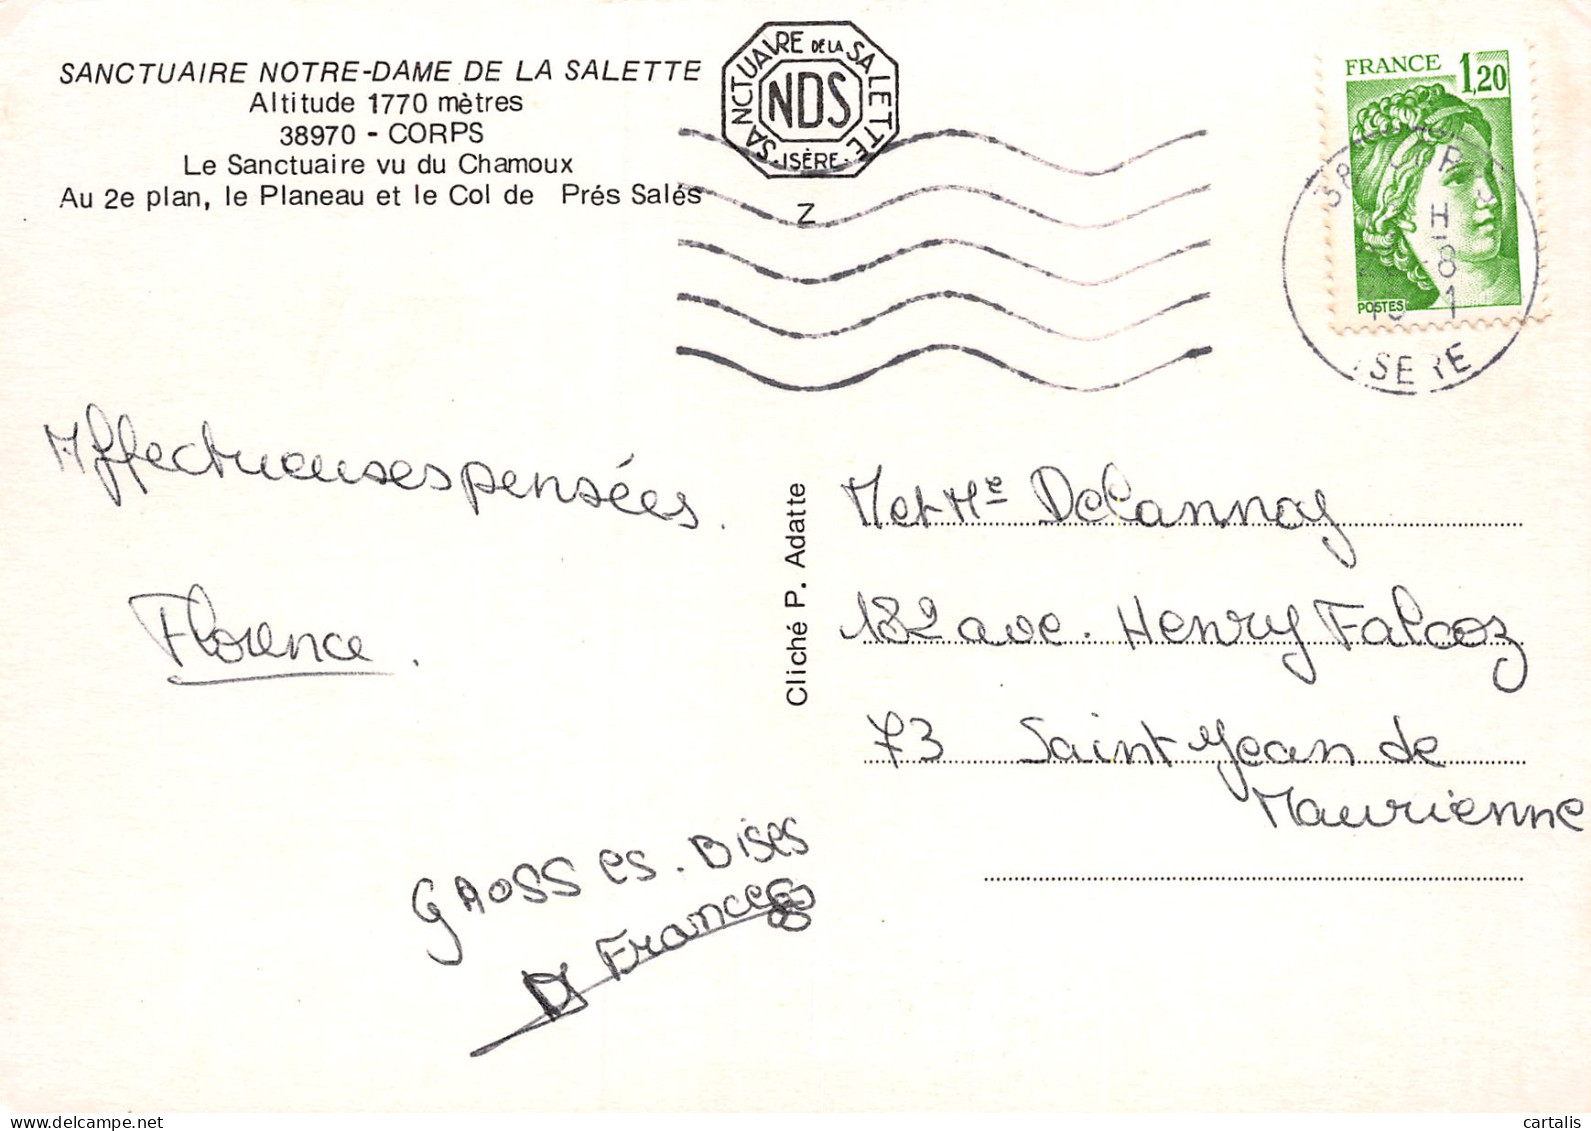 SANCTUAIRE NOTRE-DAME DE LA SALETTE
Altitude 1770 mètres
38970 - CORPS
Le Sanctuaire vu du Chamoux
Au 2e plan, le Planeau et le Col de Prés Salés
SANCTUAIRE DE LA SALETTE
NDS
·ISÈRE·
Z
FRANCE 1,20
POSTES
38 CORPS
H
8
19 1
ISERE
Affectueuses pensées.
Florence.
GROSSES. BISES
Frances
Cliché P. Adatte
M et Me Delannoy
182 ave. Henry Falcoz
73 Saint Jean de
Maurienne
© cartalis
delcampe.net